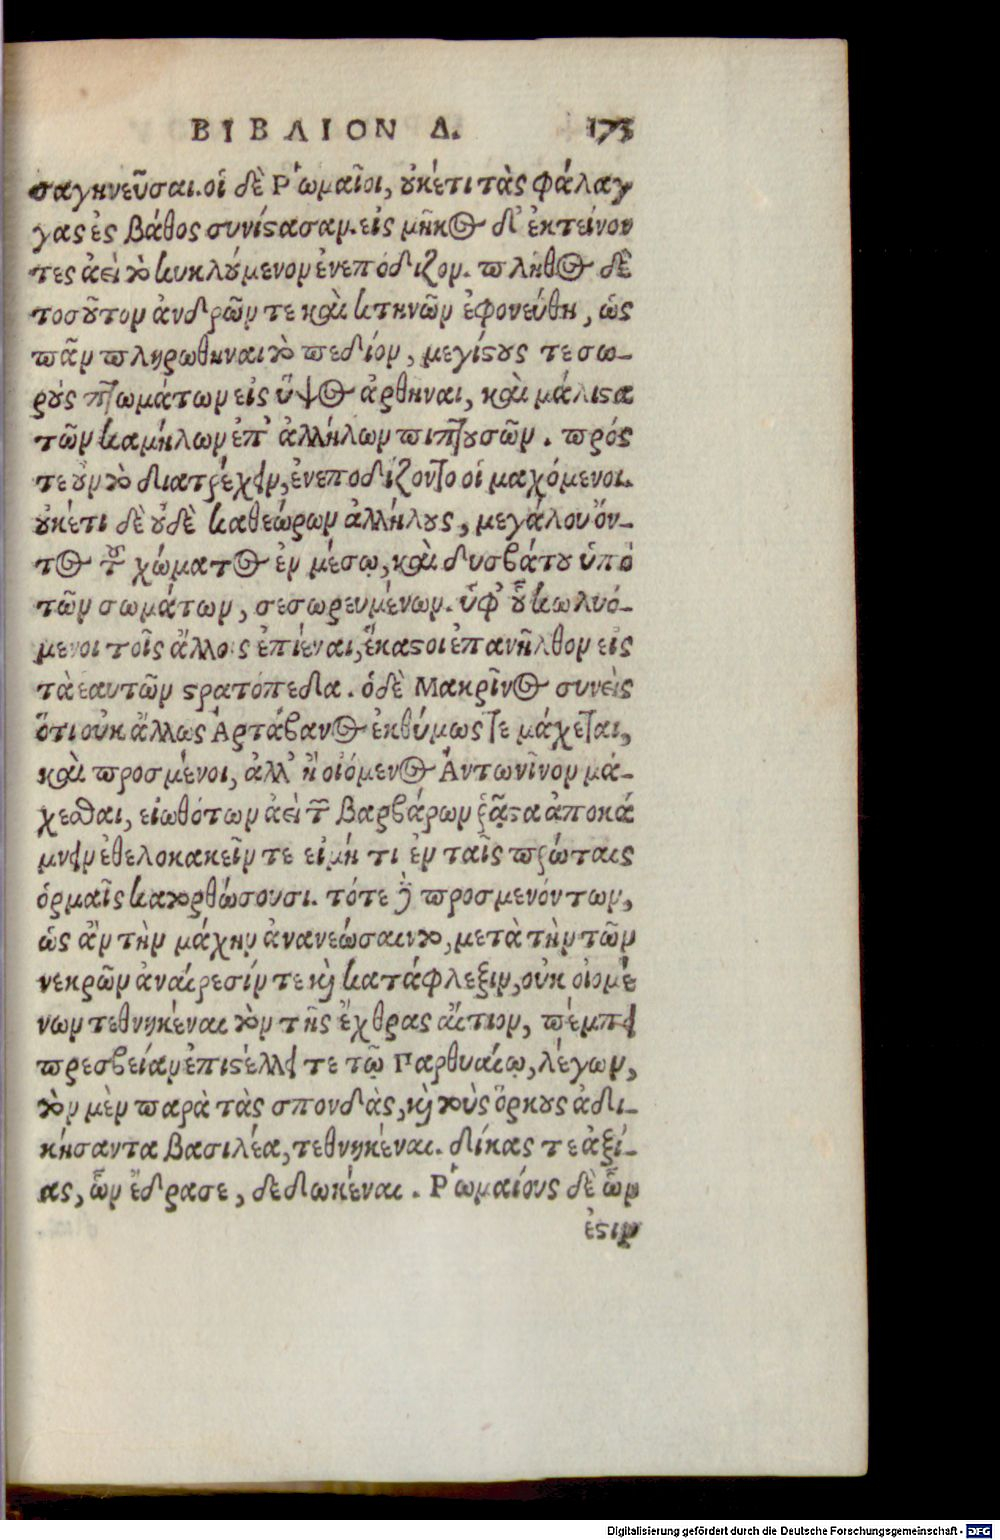 ΒΙΒΛΙΟΝ Δ. 173
σαγηνεῦσαι. οἱ δὲ Ῥωμαῖοι, ȣκέτι τὰς φάλαγ
γας ἐς βάθος συνίϛασαν. εἰς μῆκος δ' ἐκτείνον
τες ἀεὶ τὸ κυκλȣ́μενον ἐνεπόδιζον. πλῆθος δὲ
τοσȣ͂τον ἀνδρῶν τε καὶ κτηνῶν ἐφονεύθη, ὡς
πᾶν πληρωθηναι τὸ πεδίον, μεγίϛȣς τε σω-
ρȣ́ς πτωμάτων εἰς ὕψος ἀρθηναι, καὶ μάλιϛα
τῶν καμήλων ἐπ' ἀλλήλων πιπτȣσῶν. πρός
τε ȣ̓ν τὸ διατρέχειν, ἐνεποδίζοντο οἱ μαχόμενοι.
ȣκέτι δὲ ȣ̓δὲ καθεώρων ἀλλήλȣς, μεγάλου ὄν-
τος τȣ͂ χώματος ἐν μέσῳ, καὶ δυσβάτȣ ὑπὸ
τῶν σωμάτων, σεσωρευμένων. ὑφ' ȣ̓͂ κωλυό-
μενοι τοῖς ἄλλοις ἐπιέναι, ἕκαϛοι ἐπανῆλθον εἰς
τὰ ἑαυτῶν ϛρατόπεδα. ὁ δὲ Μακρῖνος συνεὶς
ὅτι οὐκ ἄλλως Ἀρτάβανος ἐκθύμως τε μάχεται,
καὶ προσμένοι, ἀλλ' ἢ οἰόμενος Ἀντωνῖνον μά-
χεσθαι, εἰωθότων ἀεὶ τῶν βαρβάρων ῥᾷϛα ἀποκά
μνειν ἐθελοκακεῖν τε εἰ μή τι ἐν ταῖς πρώταις
ὁρμαῖς κατορθώσουσι. τότε δὲ προσμενόντων,
ὡς ἂν τὴν μάχην ἀνανεώσαιντο, μετὰ τὴν τῶν
νεκρῶν ἀναίρεσίν τε κỳ κατάφλεξιν, οὐκ οἰομέ
νων τεθνηκέναι τὸν τῆς ἔχθρας αἴτιον, πέμπει
πρεσβείαν ἐπιϛέλλει τε τῷ Παρθυαίῳ, λέγων,
τὸν μὲν παρὰ τὰς σπονδὰς, κỳ τοὺς ὅρκȣς ἀδι-
κήσαντα βασιλέα, τεθνηκέναι. δίκας τε ἀξί-
ας, ὧν ἔδρασε, δεδωκέναι. Ῥωμαίους δὲ ὧν
ἐϛιν
Digitalisierung gefördert durch die Deutsche Forschungsgemeinschaft - DFG